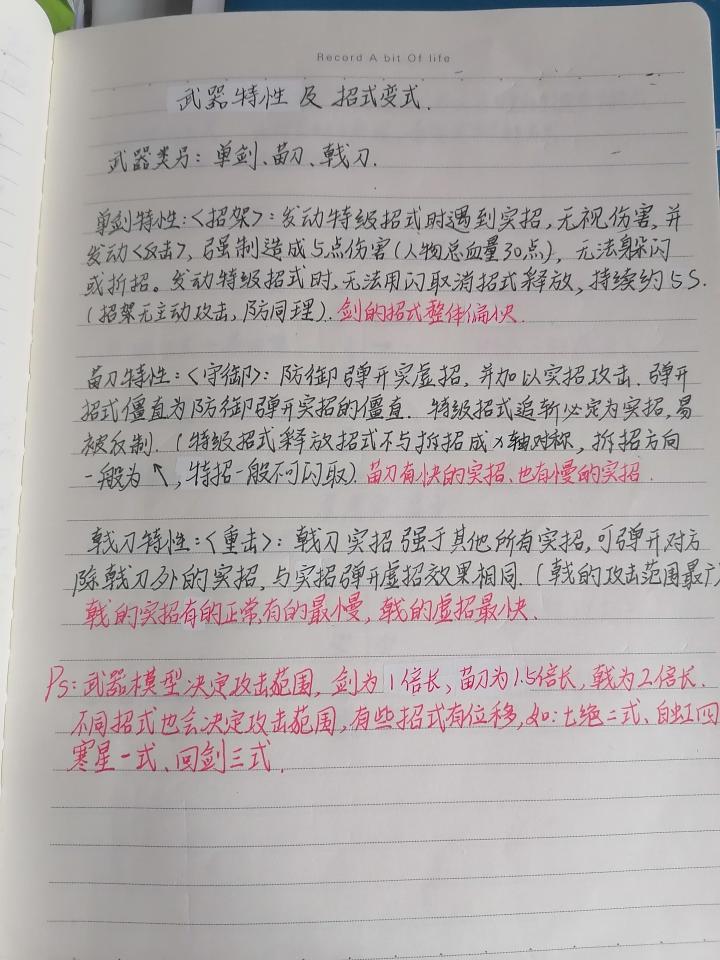 Record A bit Of life
武器特性及招式变式.
武器类另：单剑、苗刀、戟刀.
单剑特性：<招架>：发动特级招式时遇到实招，无视伤害，并
发动<反击>，强制造成5点伤害(人物总血量30点)，无法躲闪
或折招。发动特级招式时，无法用闪取消招式释放，持续约5S.
(招架无主动攻击，防同理). 剑的招式整体偏快.
苗刀特性：<守御>：防御弹开实虚招，并加以实招攻击. 弹开
招式僵直为防御弹开实招的僵直. 特级招式追斩必定为实招，易
被反制. (特级招式释放招式不与拆招成X轴对称，拆招方向
一般为↖，特招一般不可闪取) 苗刀有快的实招、也有慢的实招.
戟刀特性：<重击>：戟刀实招强于其他所有实招，可弹开对方
除戟刀外的实招，与实招弹开虚招效果相同. (戟的攻击范围最广
戟的实招有的正常、有的最慢，戟的虚招最快.
Ps：武器模型决定攻击范围，剑为1倍长，苗刀为1.5倍长，戟为2倍长.
不同招式也会决定攻击范围，有些招式有位移，如：七绝二式、白虹四
寒星一式、回剑三式.